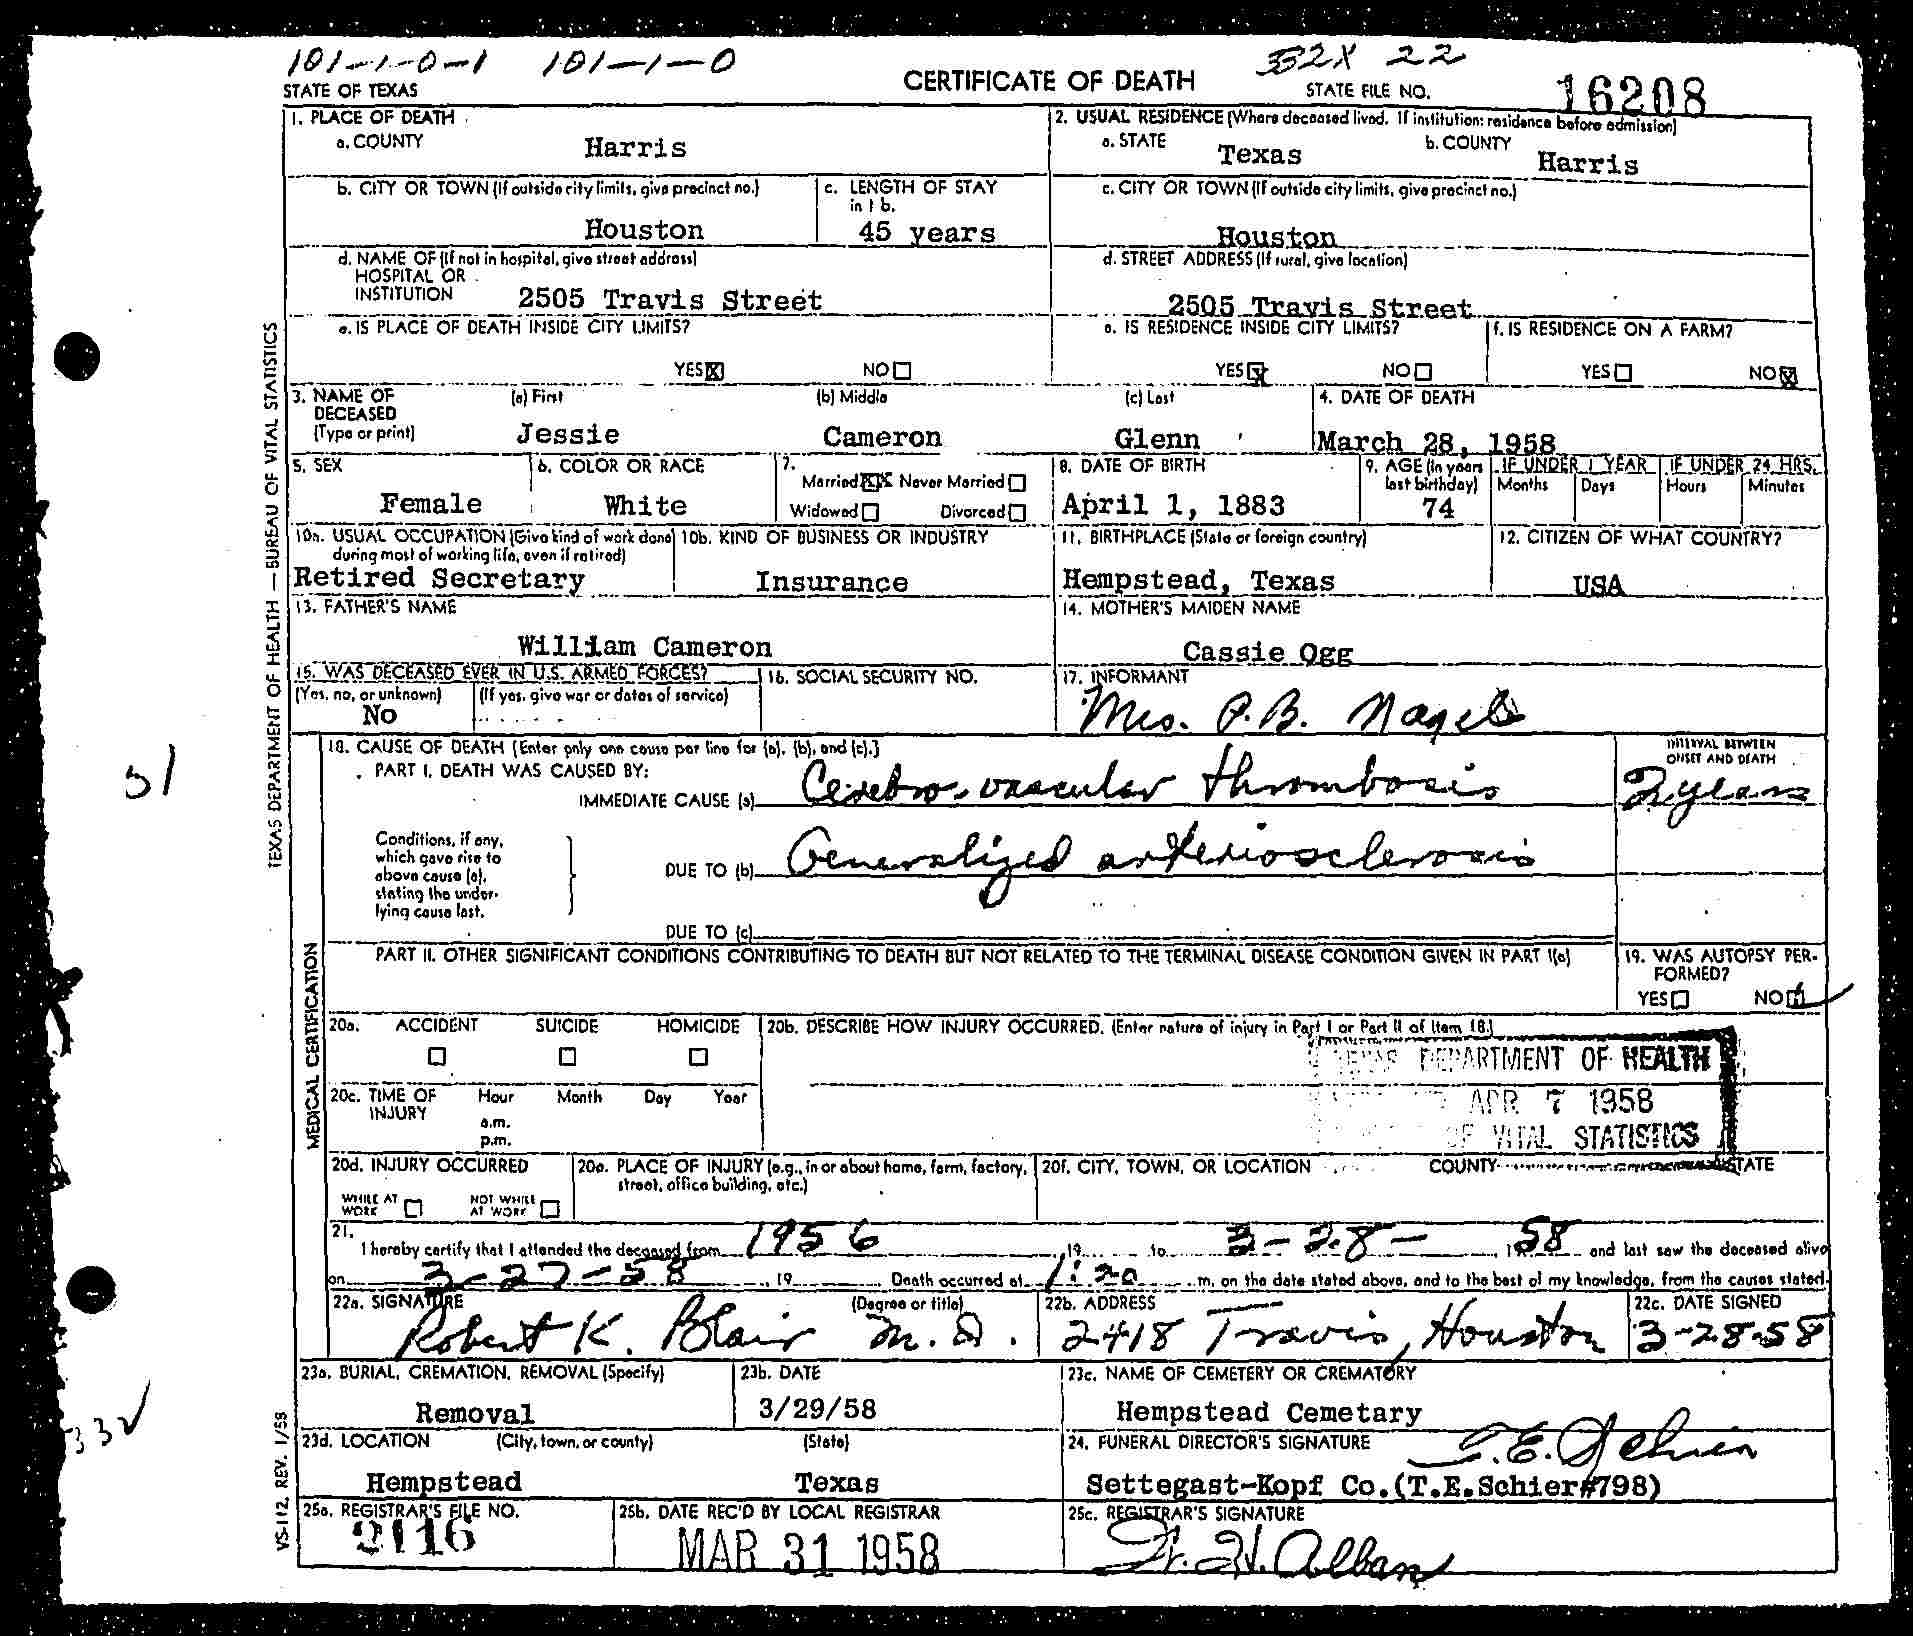 101-1-0-1 101-1-0 332X 22
STATE OF TEXAS CERTIFICATE OF DEATH STATE FILE NO. 16208
1. PLACE OF DEATH
a. COUNTY Harris
2. USUAL RESIDENCE (Where deceased lived. If institution: residence before admission)
a. STATE Texas b. COUNTY Harris
b. CITY OR TOWN (If outside city limits, give precinct no.) Houston
c. LENGTH OF STAY in 1 b. 45 years
c. CITY OR TOWN (If outside city limits, give precinct no.) Houston
d. NAME OF (If not in hospital, give street address)
HOSPITAL OR
INSTITUTION 2505 Travis Street
d. STREET ADDRESS (If rural, give location)
2505 Travis Street
e. IS PLACE OF DEATH INSIDE CITY LIMITS?
YES X NO
e. IS RESIDENCE INSIDE CITY LIMITS?
YES X NO
f. IS RESIDENCE ON A FARM?
YES NO X
3. NAME OF DECEASED (Type or print)
(a) First Jessie (b) Middle Cameron (c) Last Glenn
4. DATE OF DEATH March 28, 1958
5. SEX Female
6. COLOR OR RACE White
7. Married XX Never Married
Widowed Divorced
8. DATE OF BIRTH April 1, 1883
9. AGE (In years last birthday) 74
IF UNDER 1 YEAR Months Days
IF UNDER 24 HRS. Hours Minutes
10a. USUAL OCCUPATION (Give kind of work done during most of working life, even if retired)
Retired Secretary
10b. KIND OF BUSINESS OR INDUSTRY
Insurance
11. BIRTHPLACE (State or foreign country)
Hempstead, Texas
12. CITIZEN OF WHAT COUNTRY?
USA
13. FATHER'S NAME
William Cameron
14. MOTHER'S MAIDEN NAME
Cassie Ogg
15. WAS DECEASED EVER IN U.S. ARMED FORCES?
(Yes, no, or unknown) No (If yes, give war or dates of service)
16. SOCIAL SECURITY NO.
17. INFORMANT
Mrs. P.B. Nagel
18. CAUSE OF DEATH (Enter only one cause per line for (a), (b), and (c).)
PART I. DEATH WAS CAUSED BY:
IMMEDIATE CAUSE (a) Cerebro-vascular thrombosis
INTERVAL BETWEEN ONSET AND DEATH
2 years
Conditions, if any, which gave rise to above cause (a), stating the under-lying cause last.
DUE TO (b) Generalized arteriosclerosis
DUE TO (c)
PART II. OTHER SIGNIFICANT CONDITIONS CONTRIBUTING TO DEATH BUT NOT RELATED TO THE TERMINAL DISEASE CONDITION GIVEN IN PART I(a)
19. WAS AUTOPSY PER-FORMED?
YES NO
20a. ACCIDENT SUICIDE HOMICIDE
20b. DESCRIBE HOW INJURY OCCURRED. (Enter nature of injury in Part I or Part II of Item 18.)
TEXAS DEPARTMENT OF HEALTH
APR 7 1958
OF VITAL STATISTICS
20c. TIME OF INJURY Hour Month Day Year
a.m.
p.m.
20d. INJURY OCCURRED
WHILE AT WORK NOT WHILE AT WORK
20e. PLACE OF INJURY (e.g., in or about home, farm, factory, street, office building, etc.)
20f. CITY, TOWN, OR LOCATION COUNTY STATE
21.
I hereby certify that I attended the deceased from 1956, 19 to 3-28-, 1958 and last saw the deceased alive
on 3-27-58, 19 Death occurred at 1:20 m. on the date stated above, and to the best of my knowledge, from the causes stated.
22a. SIGNATURE (Degree or title)
Robert K. Blair M.D.
22b. ADDRESS
2418 Travis, Houston
22c. DATE SIGNED
3-28-58
23a. BURIAL, CREMATION, REMOVAL (Specify)
Removal
23b. DATE
3/29/58
23c. NAME OF CEMETERY OR CREMATORY
Hempstead Cemetary
23d. LOCATION (City, town, or county) (State)
Hempstead Texas
24. FUNERAL DIRECTOR'S SIGNATURE T.E. Schier
Settegast-Kopf Co.(T.E.Schier#798)
25a. REGISTRAR'S FILE NO.
2116
25b. DATE REC'D BY LOCAL REGISTRAR
MAR 31 1958
25c. REGISTRAR'S SIGNATURE
TEXAS DEPARTMENT OF HEALTH — BUREAU OF VITAL STATISTICS
MEDICAL CERTIFICATION
VS-112, REV. 1/58
51
332